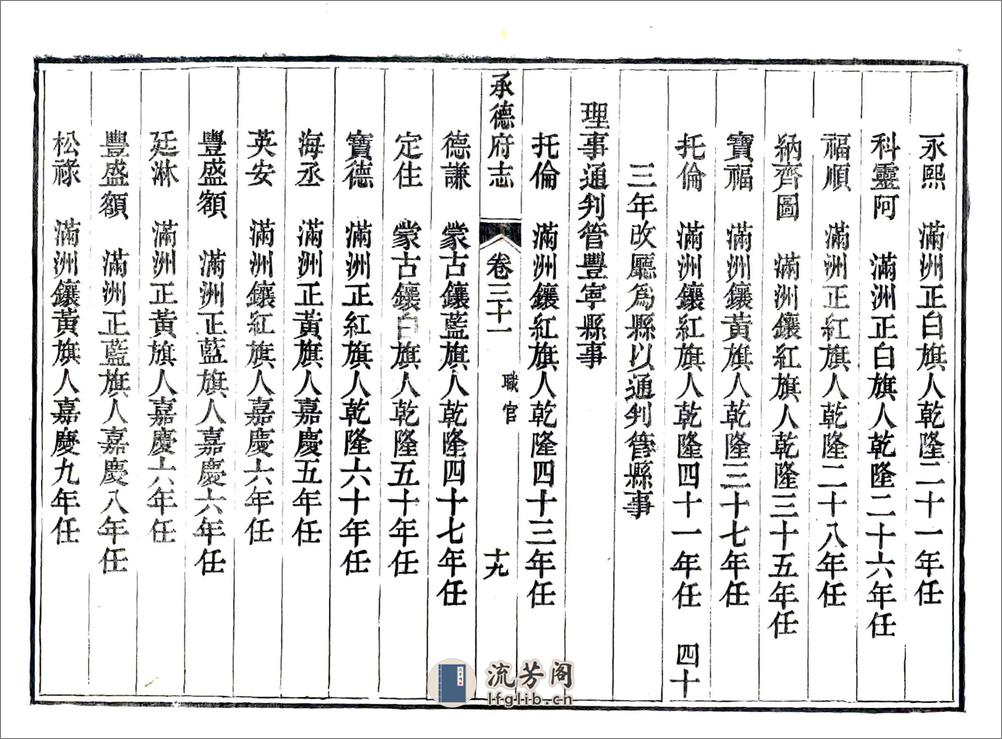 永熙　滿洲正白旗人乾隆二十一年任
科靈阿　滿洲正白旗人乾隆二十六年任
福順　滿洲正紅旗人乾隆二十八年任
納齊圖　滿洲鑲紅旗人乾隆三十五年任
寶福　滿洲鑲黃旗人乾隆三十七年任
托倫　滿洲鑲紅旗人乾隆四十一年任　四十
三年改廳爲縣以通判管縣事
理事通判管豐寧縣事
托倫　滿洲鑲紅旗人乾隆四十三年任
承德府志　卷三十一　職官　十九
德謙　蒙古鑲藍旗人乾隆四十七年任
定住　蒙古鑲白旗人乾隆五十年任
寶德　滿洲正紅旗人乾隆六十年任
海丞　滿洲正黃旗人嘉慶五年任
英安　滿洲鑲紅旗人嘉慶六年任
豐盛額　滿洲正藍旗人嘉慶六年任
廷淋　滿洲正黃旗人嘉慶六年任
豐盛額　滿洲正藍旗人嘉慶八年任
松祿　滿洲鑲黃旗人嘉慶九年任
流芳阁
lfglib.cn